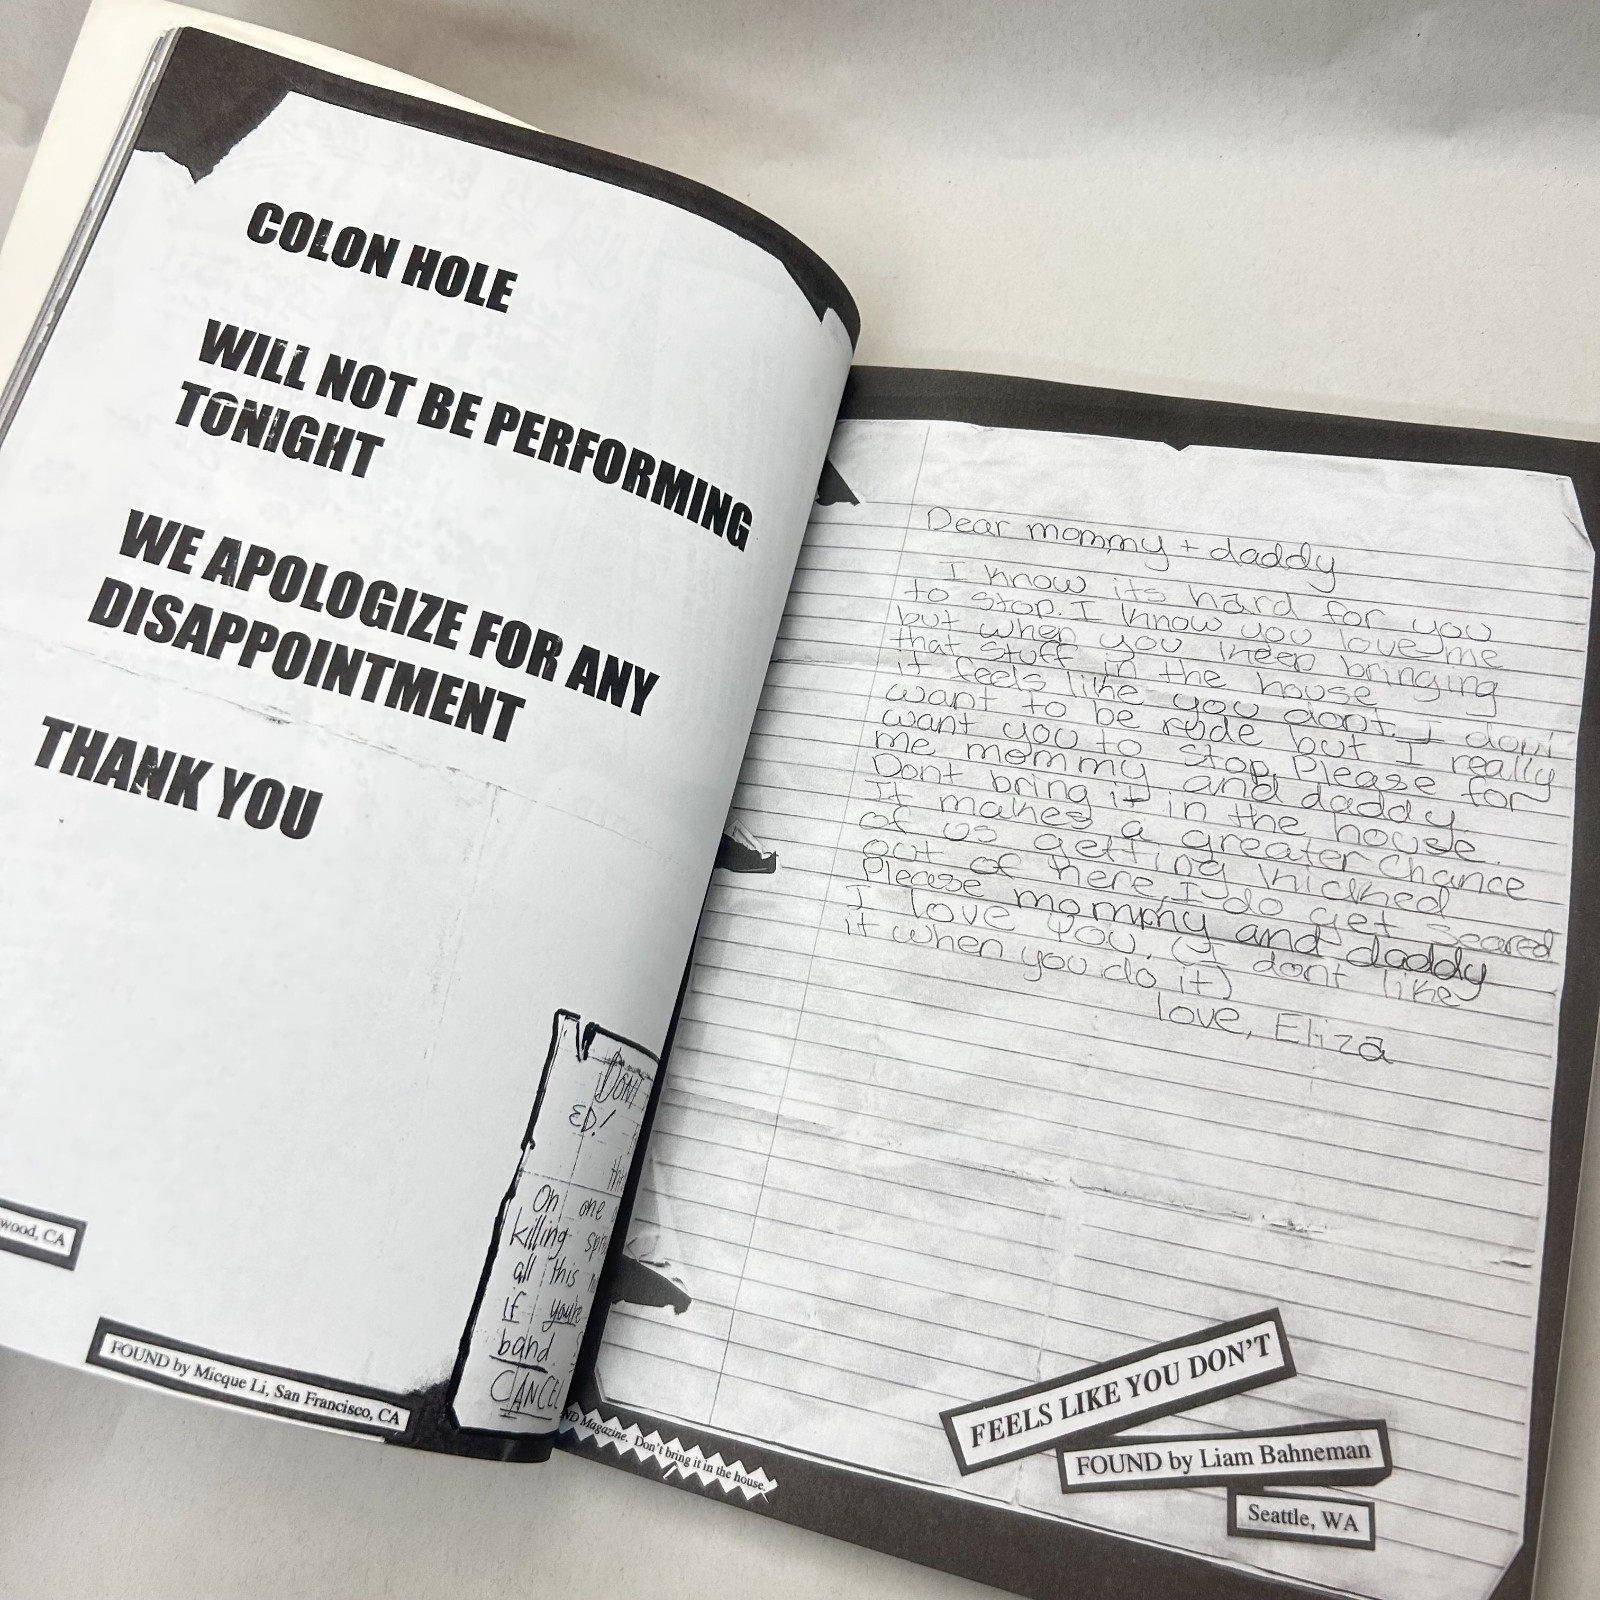 COLON HOLE
WILL NOT BE PERFORMING
TONIGHT
WE APOLOGIZE FOR ANY
DISAPPOINTMENT
THANK YOU
DONT
ED!
On one
killing
all this
if you're
band.
CANCEL
wood, CA
FOUND by Micque Li, San Francisco, CA
Dear mommy + daddy
I know its hard for you
to stop. I know you love me
but when you keep bringing
that stuff in the house
it feels like you dont. I dont
want to be rude but I really
want you to stop. Please for
me mommy and daddy.
Dont bring it in the house.
It makes a greater chance
of us getting kicked
out of here, I do get scared
Please mommy and daddy
I love you. (I dont like
it when you do it)
love, Eliza
FEELS LIKE YOU DON'T
FOUND by Liam Bahneman
Seattle, WA
ND Magazine. Don't bring it in the house.